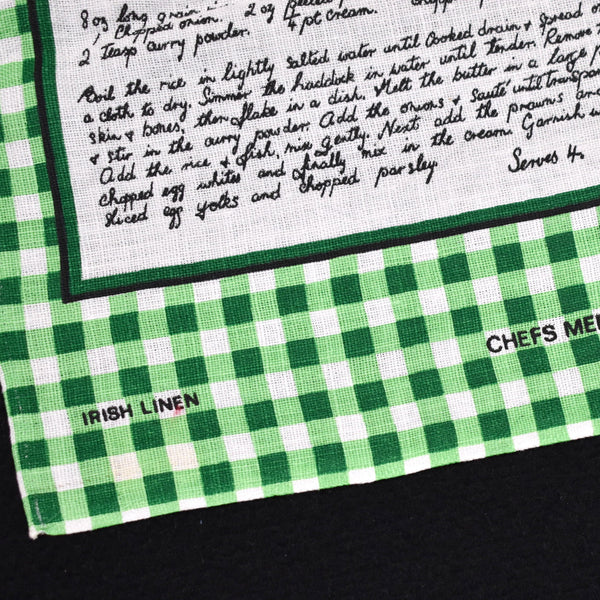 8 oz long grain
1 chopped onion. 2 oz peeled
2 teasp curry powder. 4 pt cream.
Boil the rice in lightly salted water until cooked drain & spread o
a cloth to dry. Simmer the haddock in water until tender. Remove t
skin & bones, then flake in a dish. Melt the butter in a large p
& stir in the curry powder. Add the onions & sauté until transpar
Add the rice & fish, mix gently. Next add the prawns and
chopped egg whites and finally mix in the cream. Garnish w
sliced egg yolks and chopped parsley.
Serves 4.
CHEFS ME
IRISH LINEN